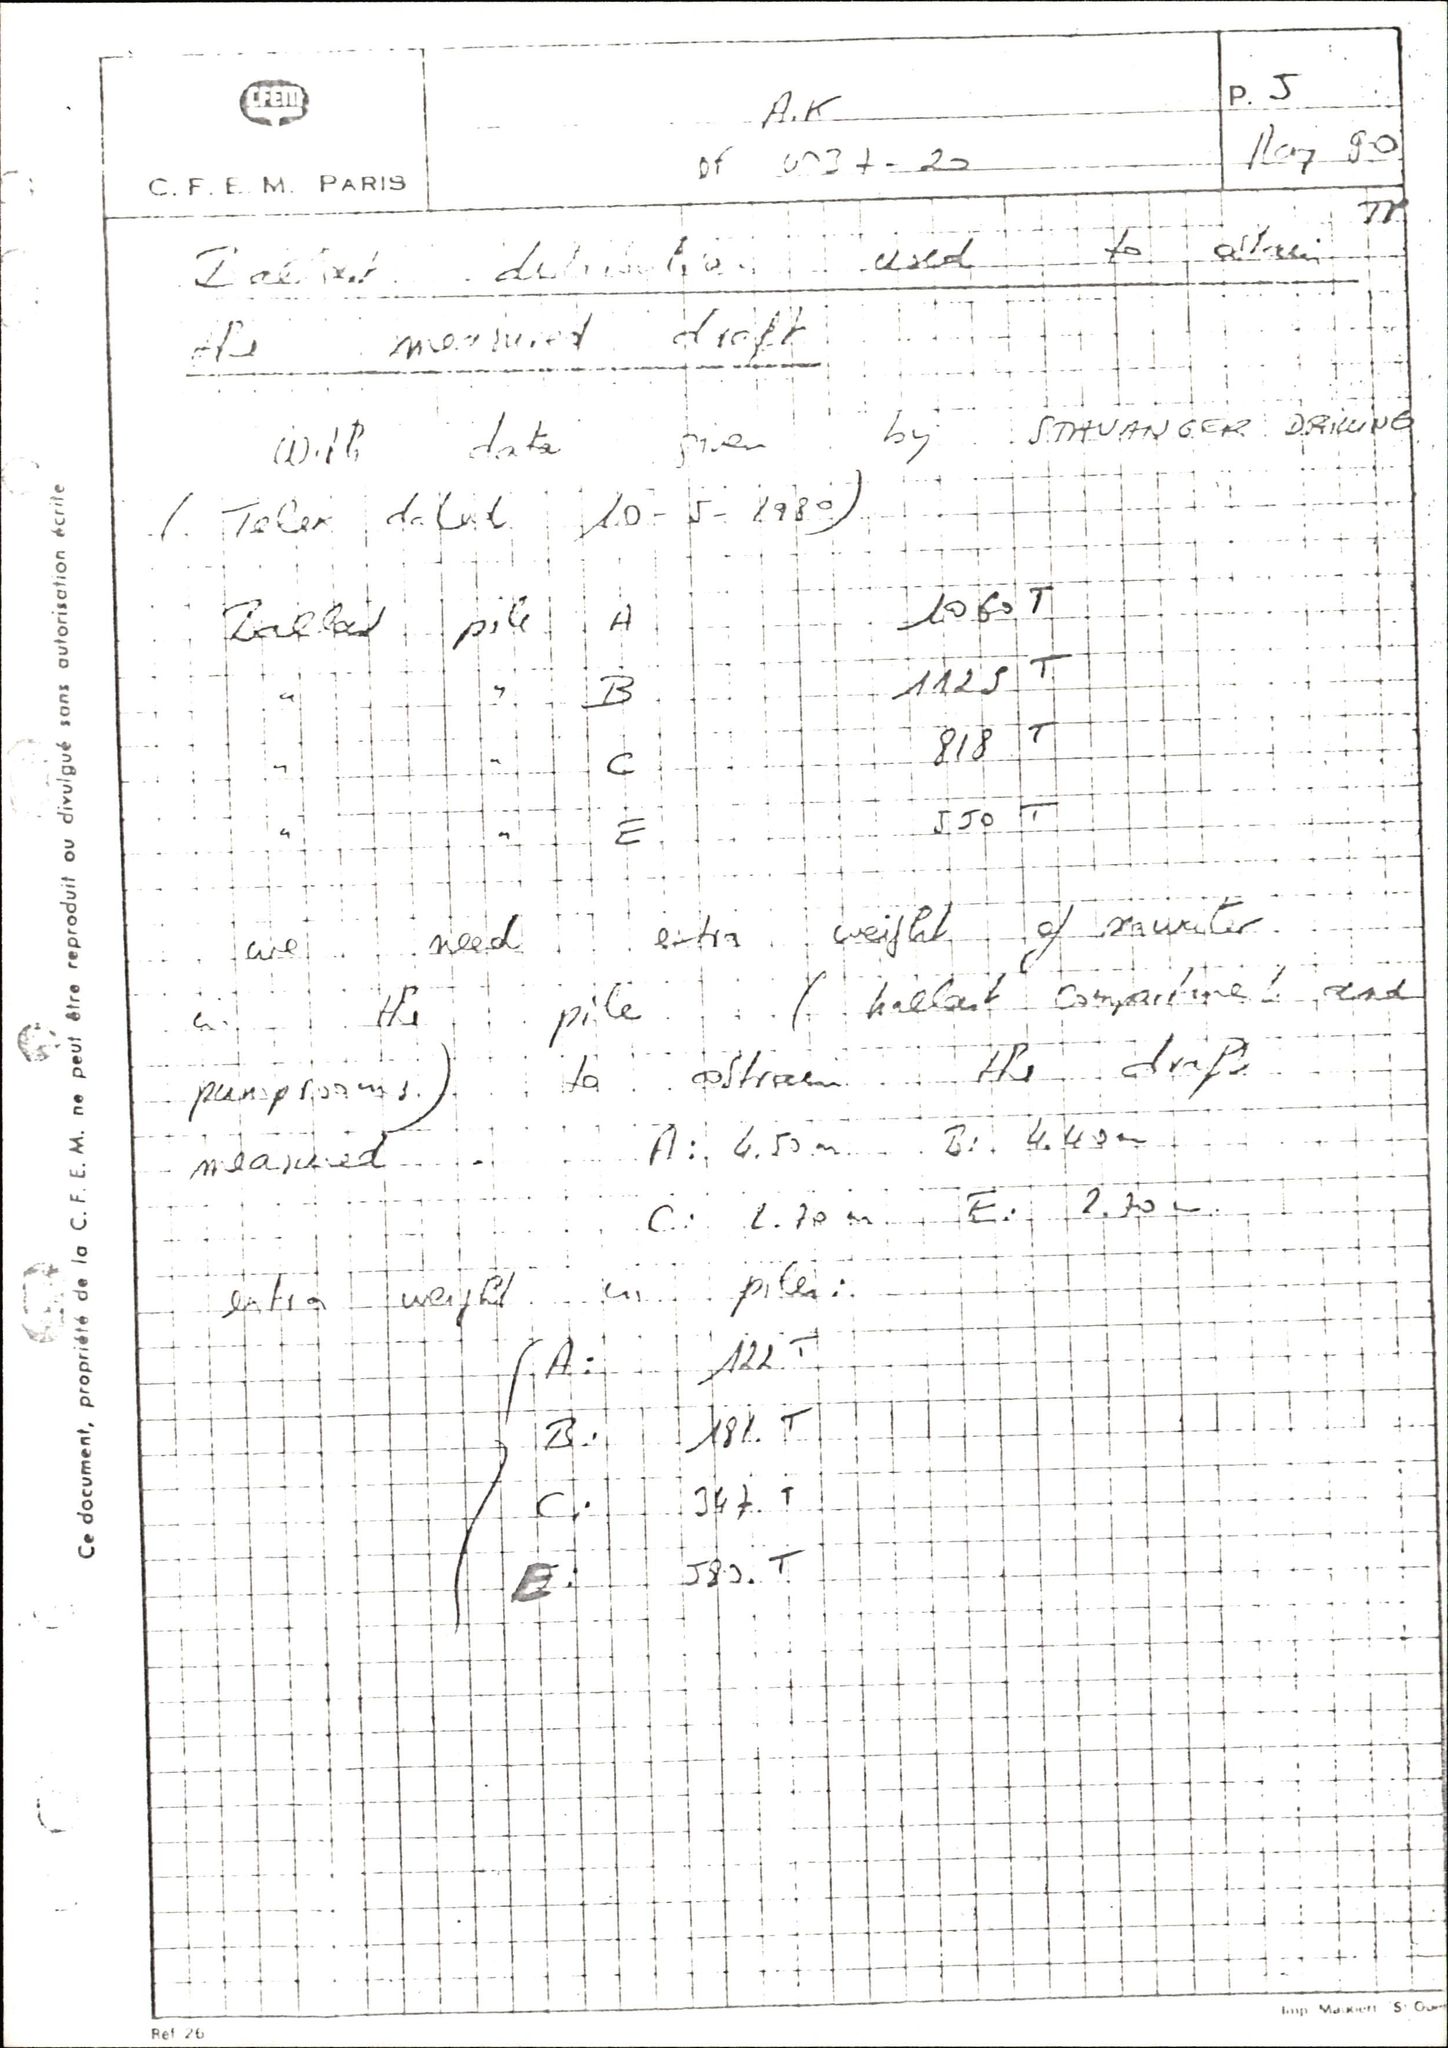 CFEM
C. F. E. M. PARIS
A.K
Df 0037-20
P. 5
May 80
Ballast distribution used to obtain
the measured draft
With data given by STAVANGER DRILLING
( Telex dated 10-5-1980)
Ballast pile A 1060 T
" " B 1125 T
" " C 818 T
" " E 550 T
we need extra weight of sawater
in the pile ( ballast compartment and
pumprooms.) to obtain the drafts
measured A: 4.50 m B: 4.40 m
C: 2.70 m E: 2.70 m
extra weight in piles:
A: 122 T
B: 181. T
C: 347. T
E: 583. T
Ce document, propriété de la C. F. E. M. ne peut être reproduit ou divulgué sans autorisation écrite
Ref 26
Imp.